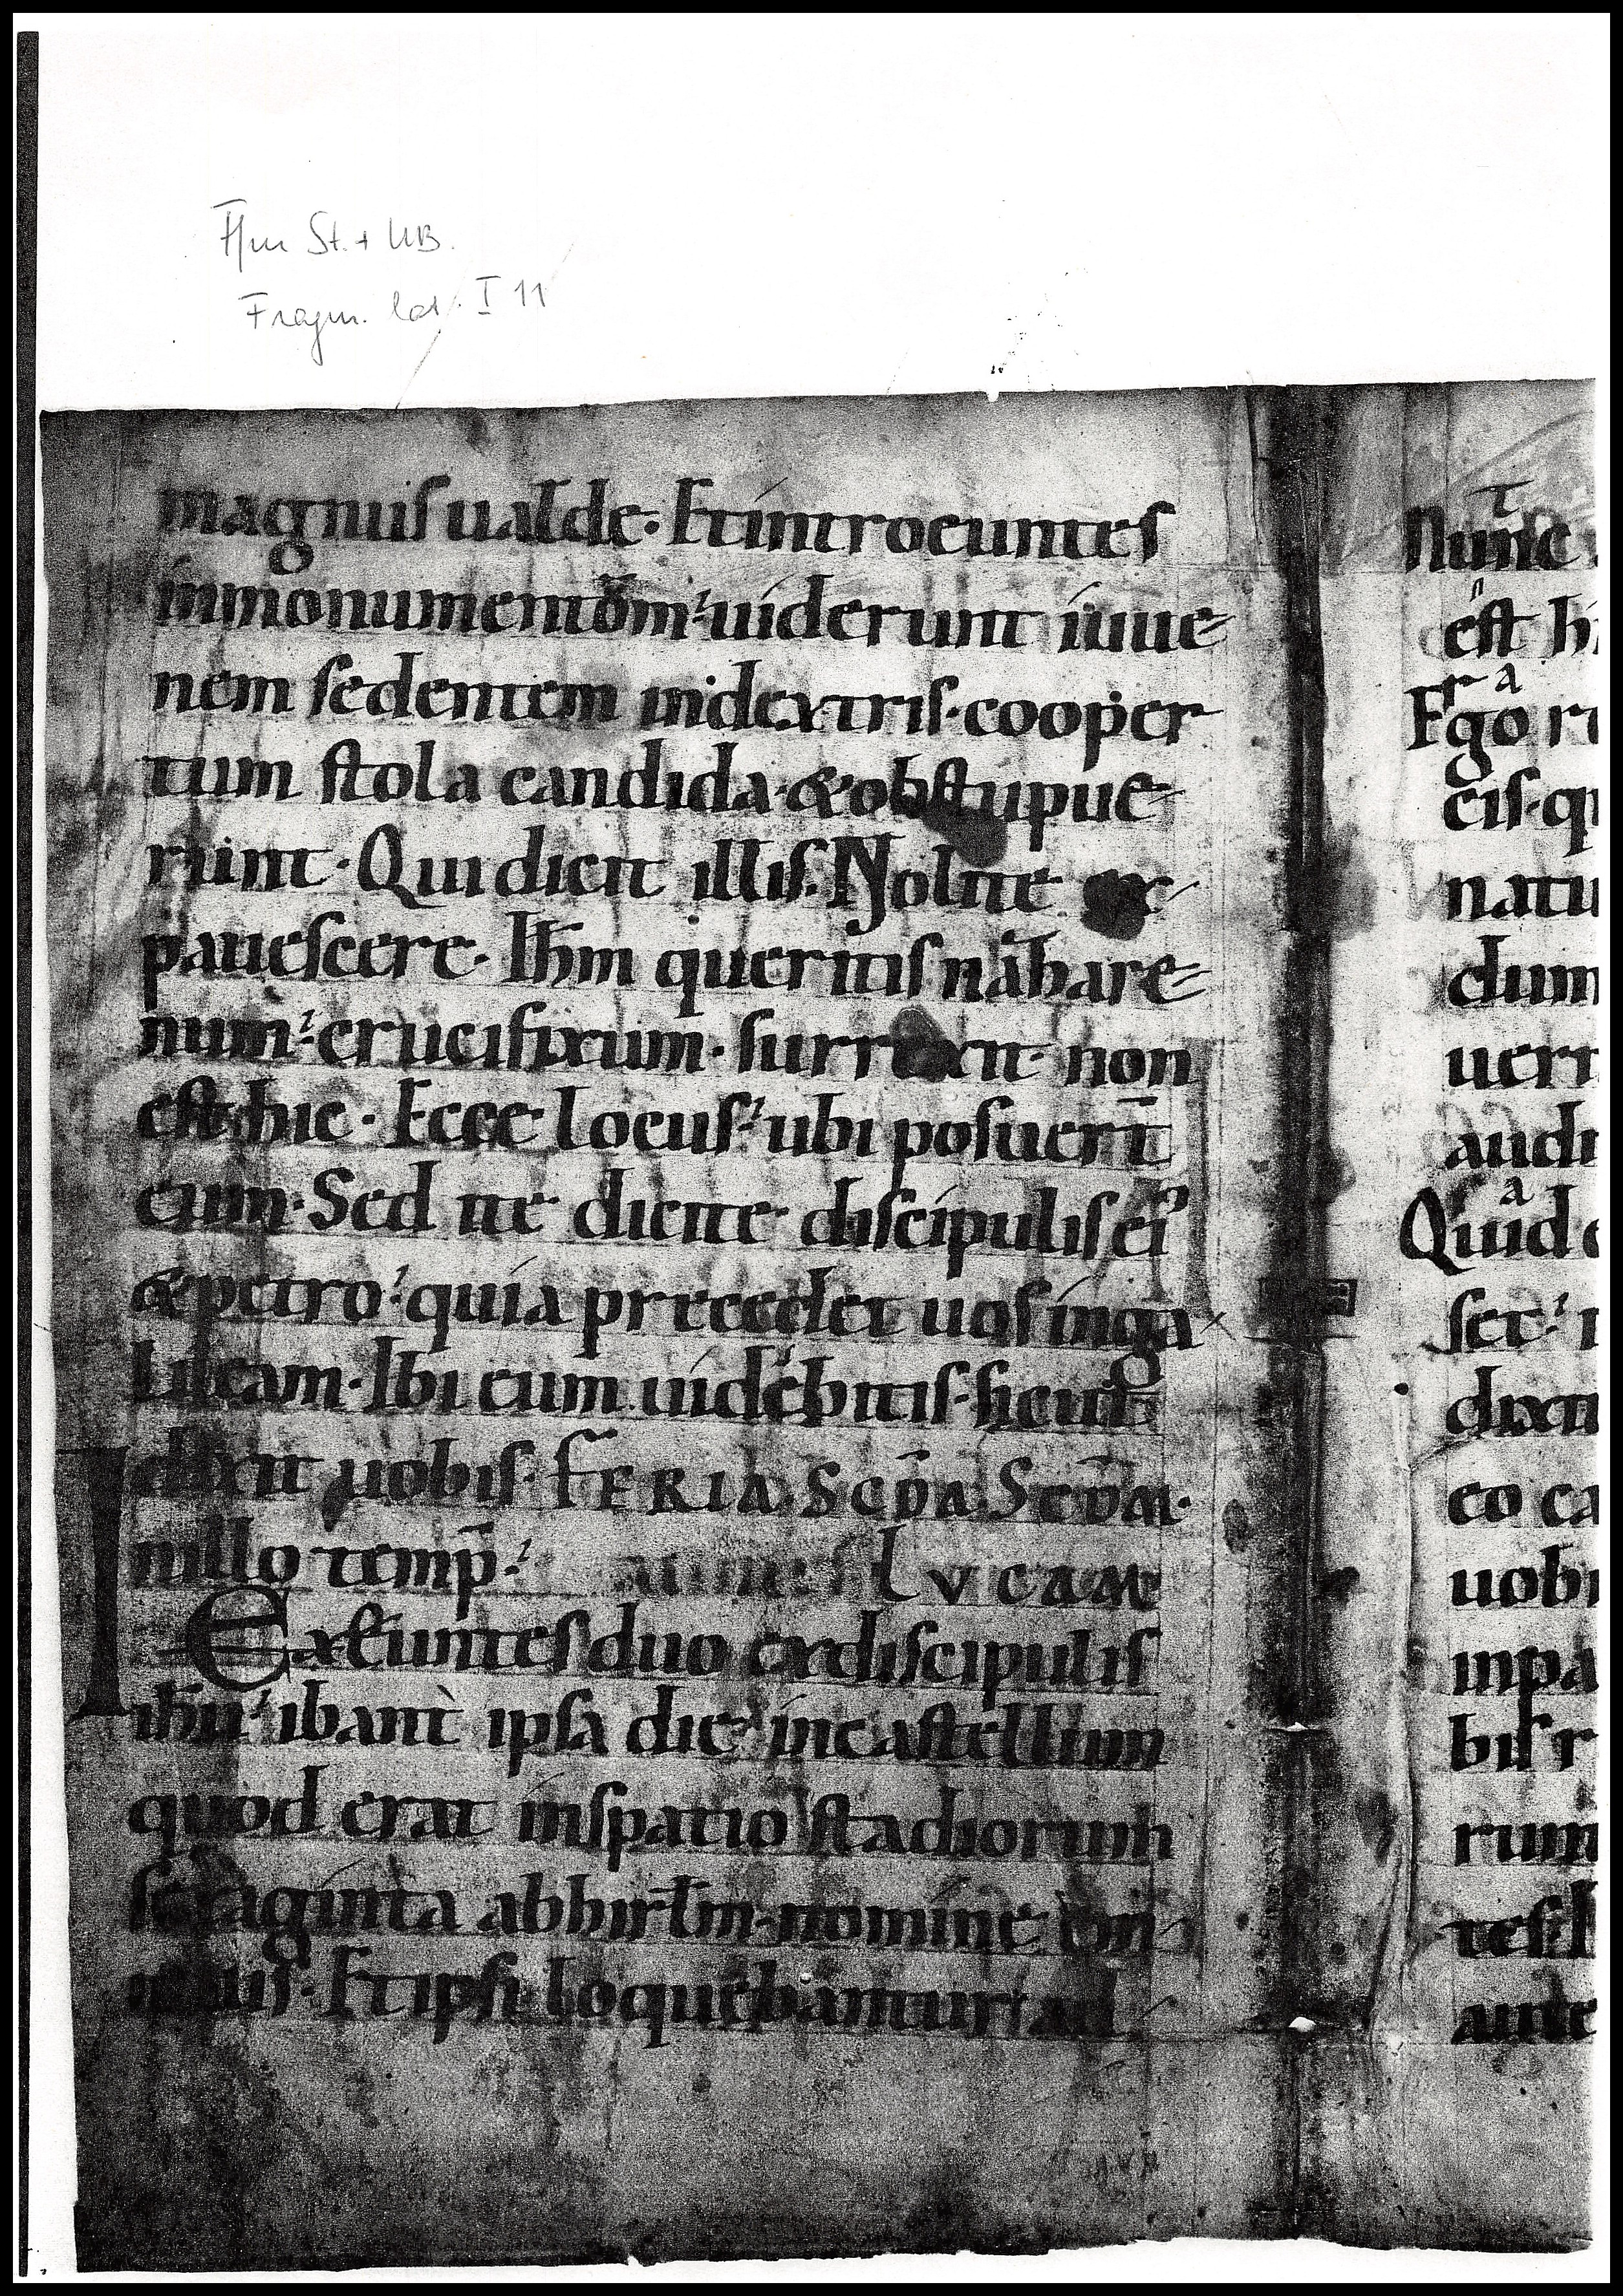 Ffm St. + UB.
Fragm. lat. I 11
magnus ualde. Et introeuntes
in monumentom uiderunt iuue
nem sedentem indextris. cooper
tum stola candida. & obstupue
runt. Qui dicit illis. Nolite ex
pauescere. Ihm queritis nahare
num. crucifixum. surrexit. non
est hic. Ecce locus. ubi posuerт̄
eum. Sed ite dicite discipulis ei'
& petro. quia precedet uos inga
lileam. Ibi eum uidebitis. sicut
dixit uobis. FERIA. SCDA. SCDM.
Inillo temp̄. LVCAM
Exeuntes duo exdiscipulis
ihu. ibant ipsa die incastellum
quod erat inspatio stadiorum
sexaginta abhirlm. nomine em
maus. Et ipsi loquebantur ad
Nunc
est hi
Ergo
eis. qu
natu
dum
uerr
audi
Quid
set.
dixit
eo ca
uobi
inpa
bis r
rum
tes. l
aute